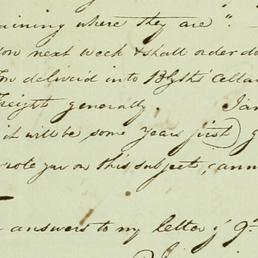 aining where they are". —
on next week & shall order do
m deliver'd into Blyths Cellar
Freights generally. Jan
it will be some years first) g
wrote you on this subject, cann
answers to my letter of 9th